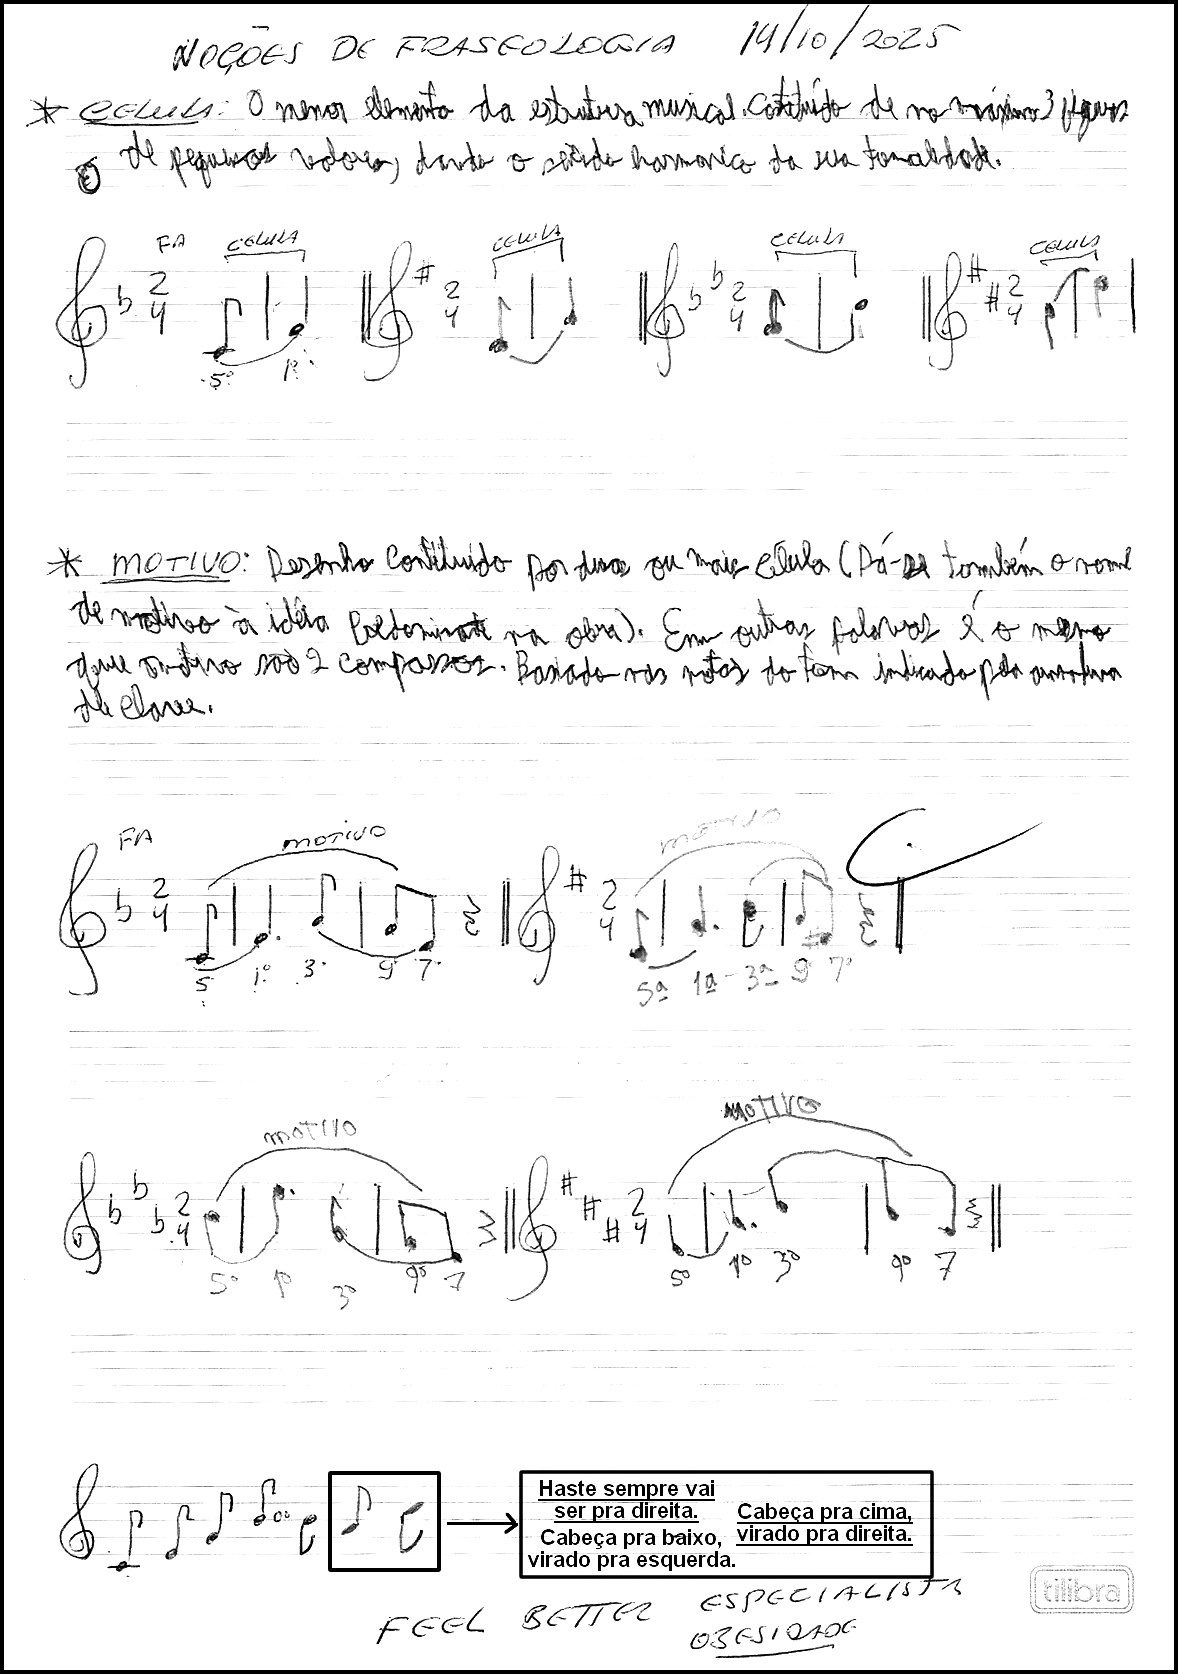 NOÇÕES DE FRASEOLOGIA 14/10/2025
* CELULA: O menor elemento da estrutura musical. Constituído de no máximo 3 figuras
de pequenos valores, dando o sentido harmonico da sua tonalidade.
FA CELULA CELULA CELULA CELULA
2 2 2 2
4 4 4 4
5º 1º
* MOTIVO: Desenho Contituido por duas ou mais célula (Dá-se também o nome
de motivo à idéia Predominate na obra). Em outras palavras é o mesmo
que motivo são 2 compassos. Baseado nas notas do tom indicado pela armadura
de clave.
FA MOTIVO MOTIVO
2 2
4 4
5 1º 3º 9º 7º 5ª 1ª 3ª 9º 7º
MOTIVO MOTIVO
2 2
4 4
5º 1º 3º 9º 7 5º 1º 3º 9º 7
Haste sempre vai
ser pra direita.
Cabeça pra baixo,
virado pra esquerda.
Cabeça pra cima,
virado pra direita.
tilibra
FEEL BETTER ESPECIALISTA
OBESIDADE